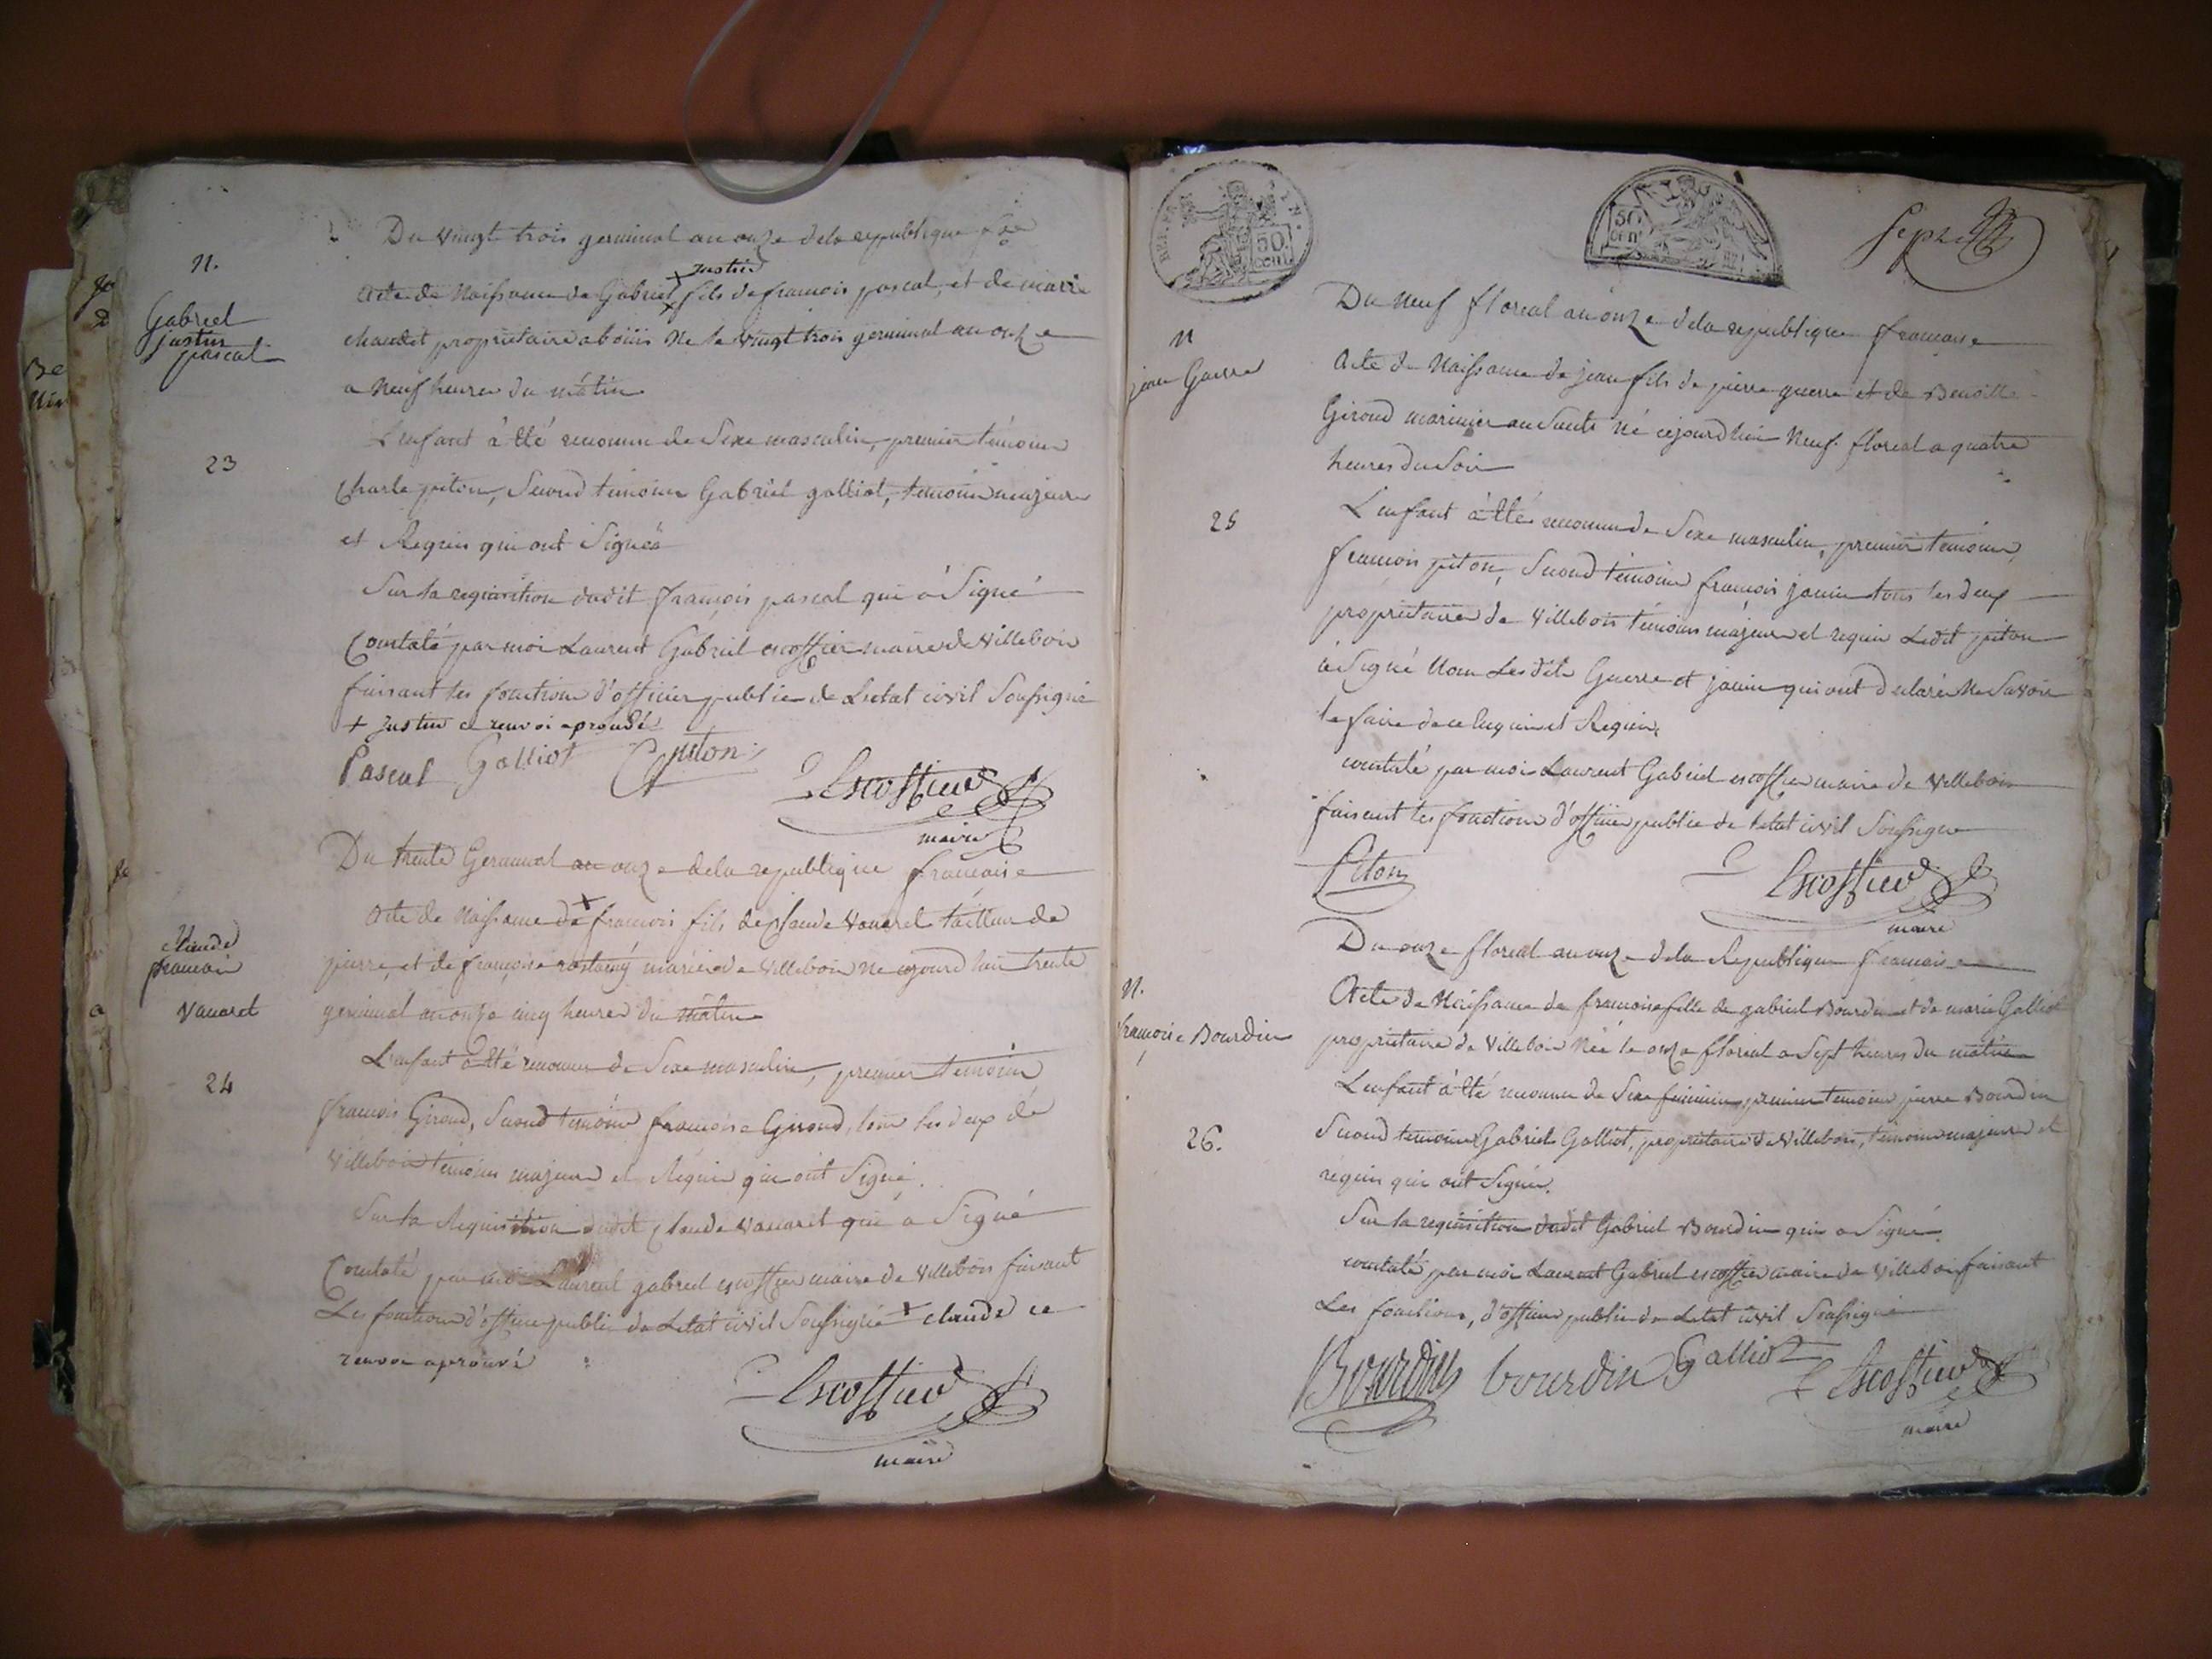 Du vingt trois germinal an onze dela republique
N.
Gabriel
justin
pascal
justin
Acte de Naissance de Gabriel + fils de francois pascal, et de marie
chaudet propriétaire a bouis Né le vingt trois germinal an onze
a Neuf heures du matin
23
L'enfant à été reconnu de Sexe masculin, premier témoin
Charle piton, Second témoin Gabriel galliot, témoins majeurs
et Requis qui ont Signés
Sur la requisition dudit françois pascal qui à Signé
Constaté par moi Laurent Gabriel escoffier maire de Villebois
faisant les fonctions d'officier public de Letat civil Soussigné
+ Justin ce renvoi aprouvé
Pascal Galliot C piton
L Escoffier
maire
Du trente Germinal an onze dela republique francaise
claude
francois
Vauaret
Acte de Naissance de + francois fils de Claude Vauaret tailleur de
pierre et de françoise rostaing mariés de Villebois né cejourd'hui trente
germinal an onze cinq heures du matin
24
L'enfant à été reconnu de Sexe masculin, premier témoin
françois Giroud, Second témoin françoise Giroud, tous les deux de
Villebois témoins majeurs et Réquis qui ont Signé.
Sur la Requisition dudit Claude Vauaret qui a Signé
Constaté par moi Laurent gabriel escoffier maire de Villebois faisant
Les fonctions d'officier public de Letat civil Soussigné + claude ce
renvoi aprouvé
L Escoffier
maire
REP. FRA
50
cent.
50
cen.
Du Neuf floreal an onze dela republique francaise
N
jean Guerre
Acte de Naissance de jean fils de pierre guerre et de Benoite
Giroud marinier au Saults né cejourd'hui Neuf floreal a quatre
heures du Soir
25
L'enfant à été reconnu de Sexe masculin, premier témoin
francois piton, Second témoin francois janin tous les deux
proprietaires de Villebois témoins majeurs et requis Ledit piton
à Signé Non Lesdits Guerre et janin qui ont declarés Ne Savoir
le faire de ce Enquis et Requis.
constaté par moi Laurent Gabriel escoffier maire de Villebois
faisant les fonctions d'officier public de letat civil Soussigné
Piton
L Escoffier
maire
Du onze floreal an onze dela Republique francaise
N.
françoise Bourdin
Acte de Naissance de francoise fille de gabriel Bourdin et de marie Galliot
propriétaire de Villebois Née le onze floreal a Sept heures du matin
L'enfant à été reconnu de Sexe feminin premier temoin pierre Bourdin
26.
Second temoin Gabriel Galliot, proprietaires de Villebois, témoins majeurs et
requis qui ont Signés.
Sur la requisition dudit Gabriel Bourdin qui a Signé.
constaté par moi Laurent Gabriel escoffier maire de Villebois faisant
Les fonctions, d'officier public de Letat civil Soussigné
Bourdin bourdin Galliot L Escoffier
maire